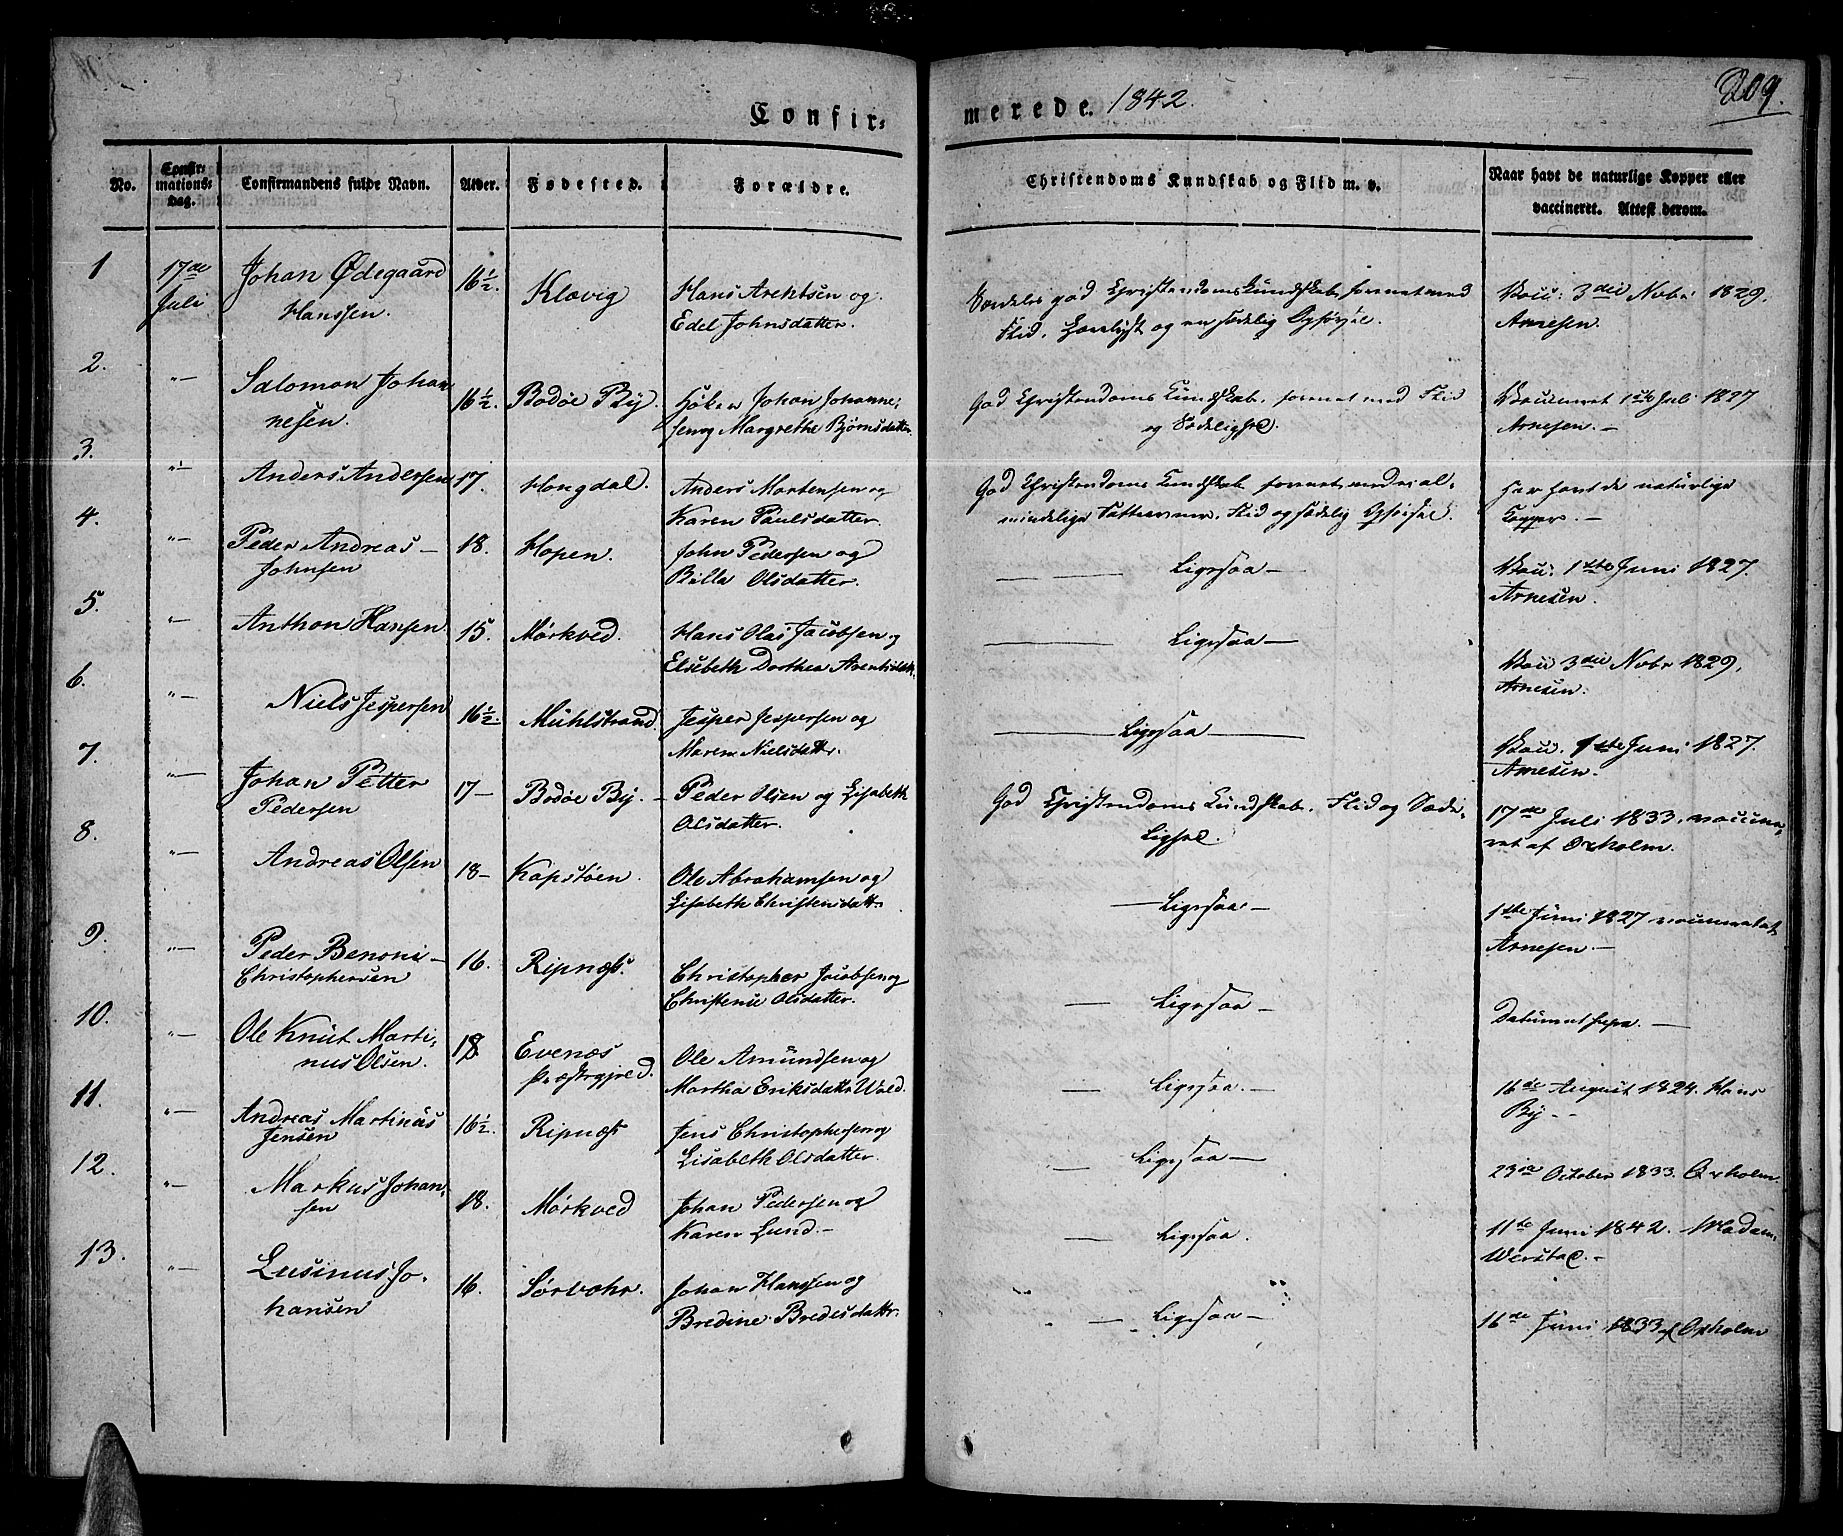 209.
Confir=
merede. 1842.
No.
Confir=
mations=
dag.
Confirmandens fulde Navn.
Alder.
Fødested.
Forældre.
Christendoms Kundskab og Flid m. v.
Naar havt de naturlige Kopper eller
vaccineret. Attest derom.
1
17de
Juli
Johan Ødegaard
Hanssen.
16 1/2.
Klævig
Hans Arentsen og
Edel Johnsdatter.
Særdeles god Christendomskundskab, forenet med
Flid, Lærelyst og en sædelig Opførsel.
Vacc: 3die Nvbr 1829.
Arnesen.
2.
-"-
Salomon Johan
nesen.
16 1/2.
Bodøe By.
Johan Johanne,
sen og Margrethe Bjørnsdatter.
God Christendoms Kundskab, forenet med Flid
og Sædelighed.
Vaccineret 1ste Juli 1827
Arnesen. -
3.
-"-
Anders Andersen
17.
Hongdal.
Anders Mortensen og
Karen Paulsdatter.
God Christendoms Kundskab forenet med al-
mindelige Flid og sædelig Opførsel.
Har havt de naturlige
Kopper. -
4.
-"-
Peder Andreas -
Johnsen
18.
Hopen.
John Pedersen og
Olsdatter.
Ligesaa -
Vacc: 1ste Juni 1827.
Arnesen.
5.
-"-
Anthon Hansen.
15.
Mørkved.
Hans Olai Jacobsen og
Elsebeth Dorthea
Ligesaa -
Vacc 3die Nvbr 1829.
Arnesen.
6.
-"-
Niels Jespersen
16 1/2.
Muhlstrand.
Jesper Jespersen og
Maren Nielsdattr.
Ligesaa
Vacc. 1ste Juni 1827.
Arnesen.
7.
-"-
Johan Petter
Pedersen
17-
Bodøe By. -
Peder Olsen og Lisabeth
Olsdatter.
God Christendoms Kundskab, Flid og Sæde,
Lighed.
17de Juli 1833, vaccine,
ret af Oxholm.
8.
-"-
Andreas Olsen
18-
Kopstøen.
Ole Abrahamsen og
Lisabeth Christensdattr.
Ligesaa. -
1ste Juni 1827
Arnesen -
9.
-"-
Peder Benoni -
Christophersen
16.
Ripnæs.
Christopher Jacobsen og
Olsdatter.
Ligesaa -
Datum ut supra. -
10.
-"-
Ole Knut Marti,
nus Olsen.
18
Evenæs
Præstegjeld.
Ole Amundsen og
Martha Eriksdattr Wold.
Ligesaa. -
16de August 1824. Hans
By - -
11.
-"-
Andreas Martinus
Jensen
16 1/2.
Ripnæs
Jens Christophersen og
Lisabeth Olsdatter.
Ligesaa -
23de October 1833. Oxholm.
12.
-"-
Markus Johan,
sen
18.
Mørkved
Johan Pedersen og
Karen Lund. -
Ligesaa.
11te Juni 1842. Madam
13.
-"-
Lusinus Jo,
hansen
16.
Johan Hanssen og
Bredine Bredesdattr.
Ligesaa -
16de Juni 1833 af Oxholm